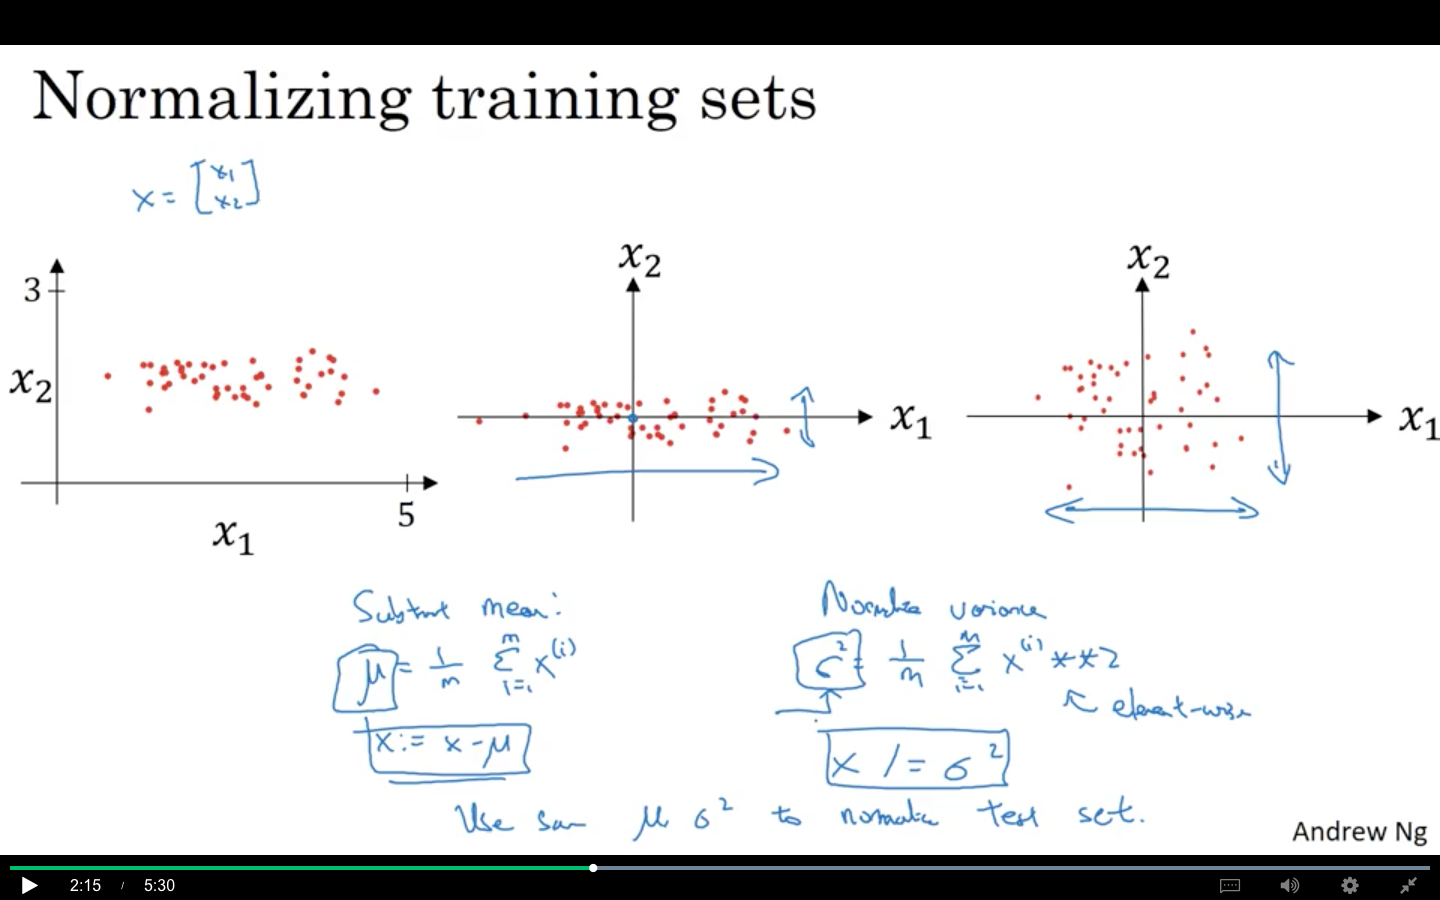 Normalizing training sets
x = [x1 x2]
x2
x2
3
x2
x1
x1
5
x1
Subtract mean:
Normalize variance
μ = 1/m Σ_{i=1}^{m} x^(i)
σ² = 1/m Σ_{i=1}^{m} x^(i) **2
element-wise
x := x - μ
x /= σ²
Use same μ σ² to normalize test set.
Andrew Ng
2:15 / 5:30